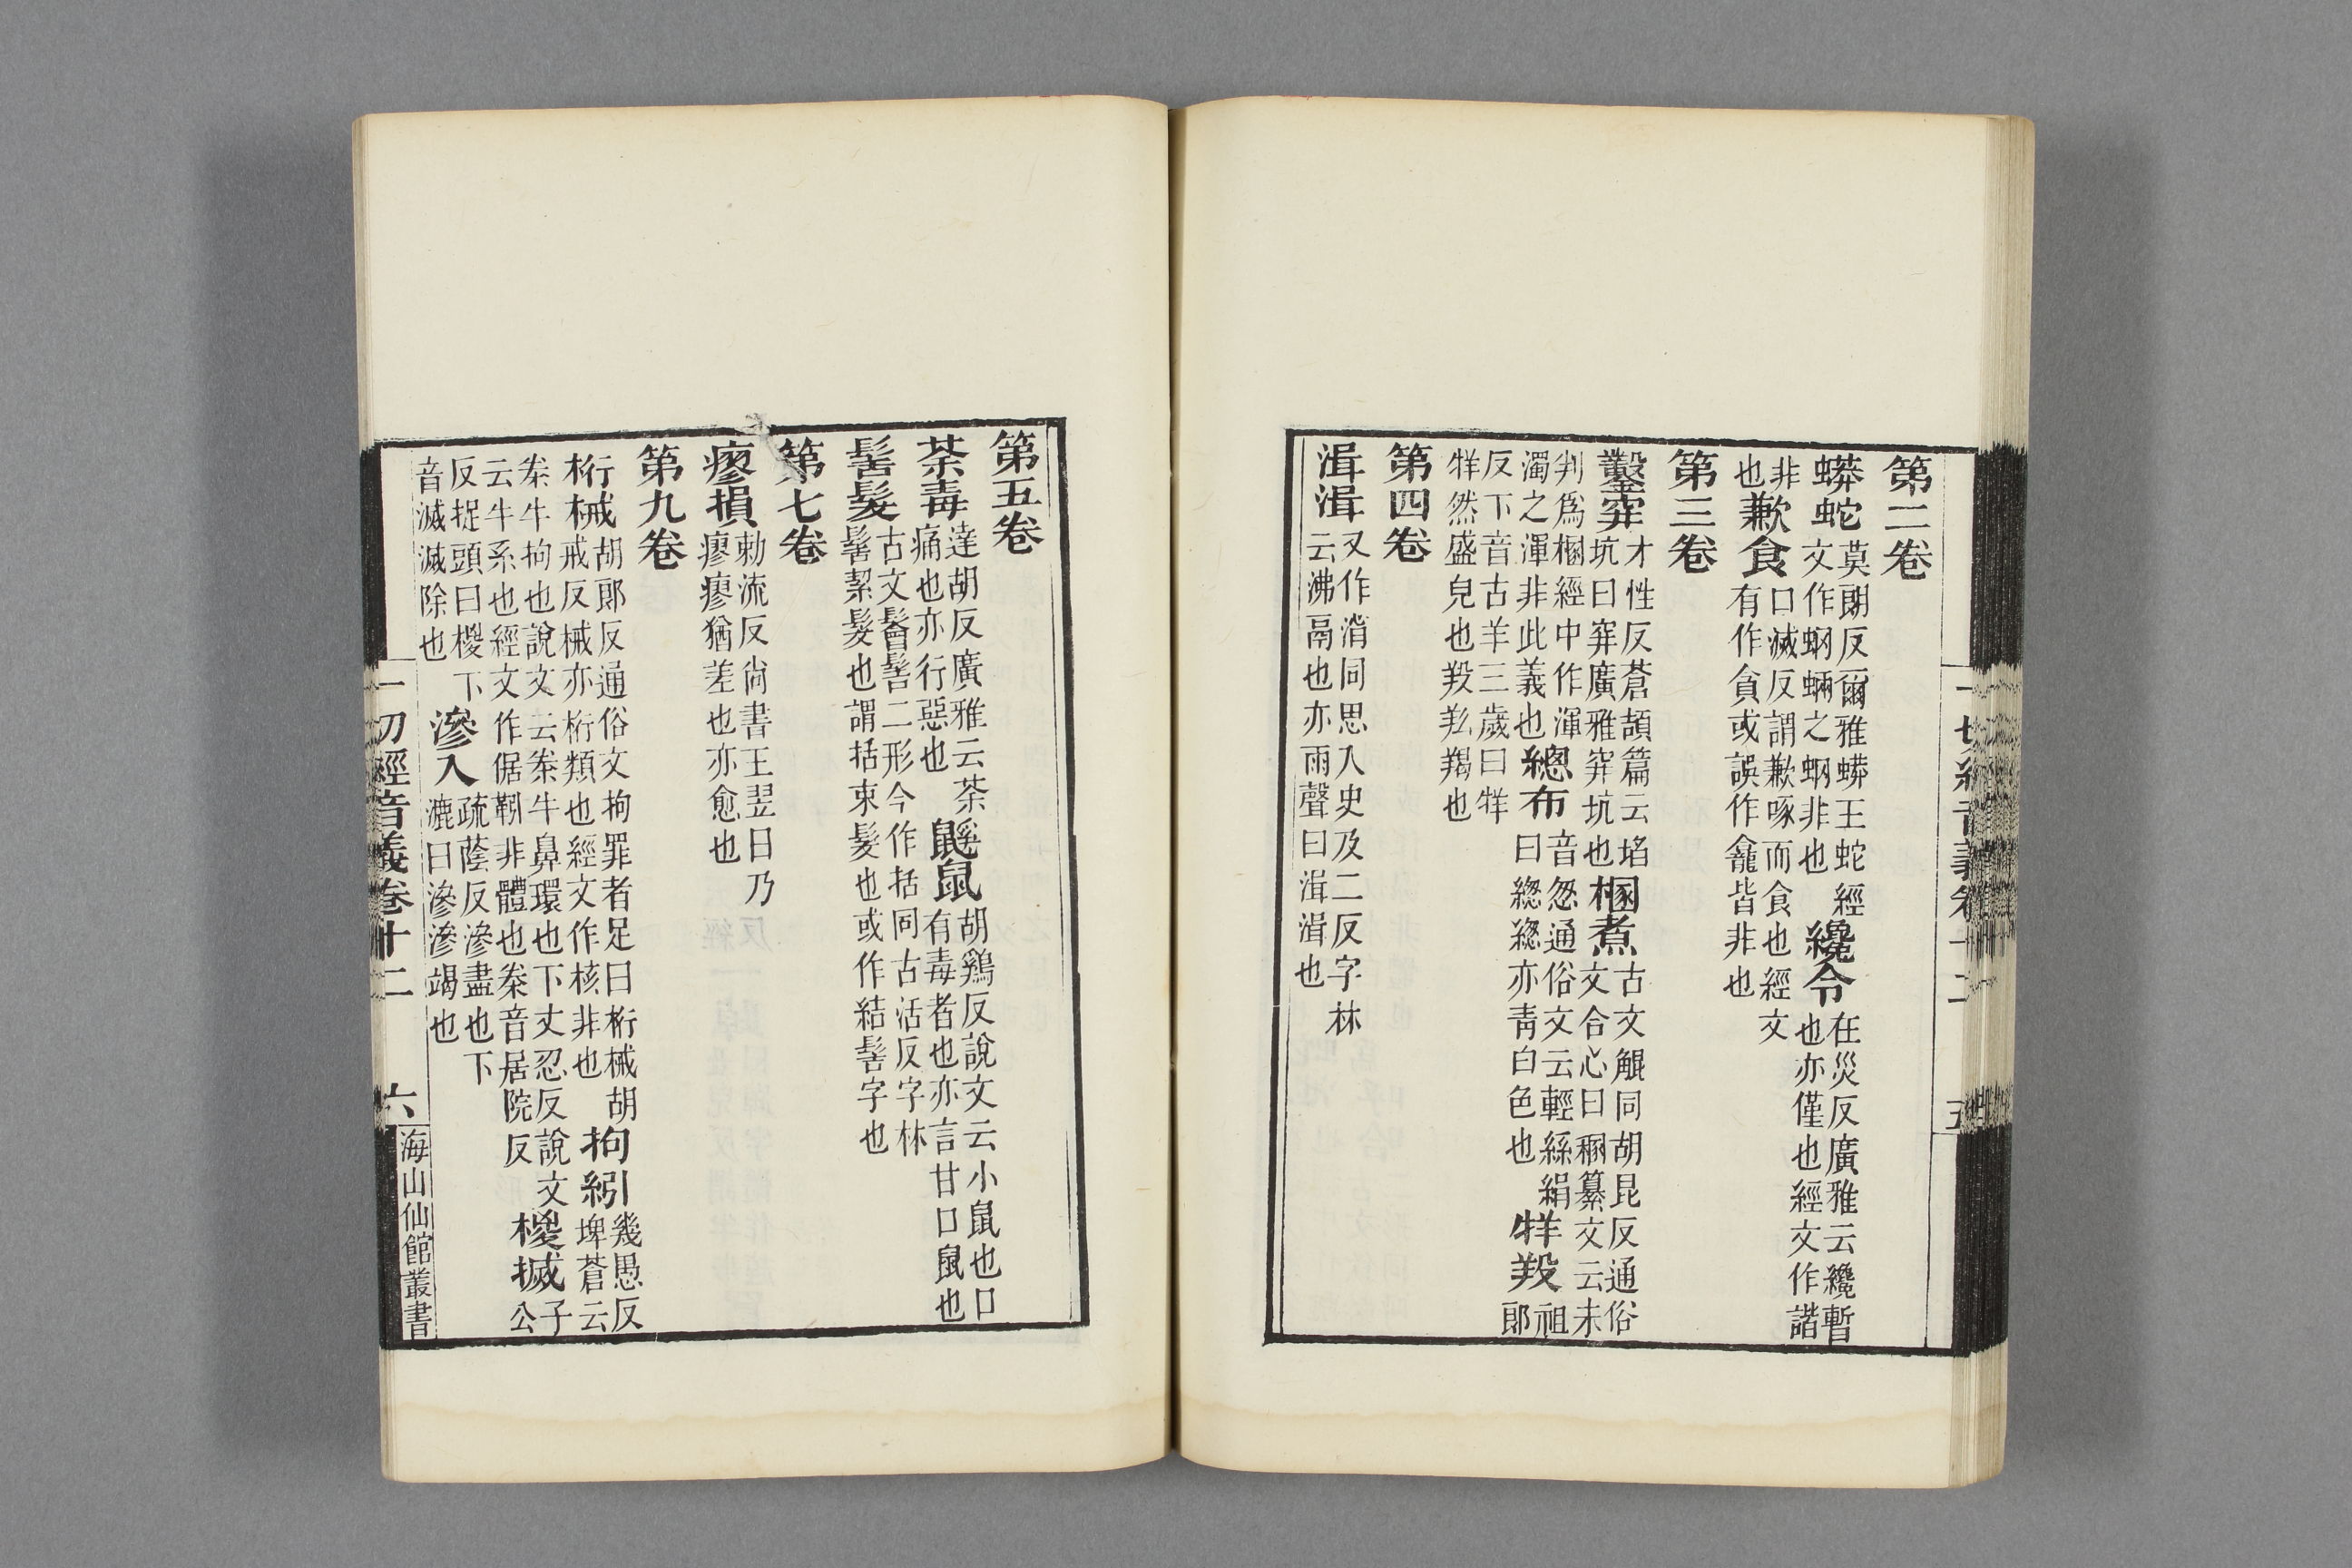 一切經音義卷十二
五
第二卷
蟒蛇莫朗反爾雅蟒王蛇經文作蛧蜽之蛧非也纔令在災反廣雅云纔暫也亦僅也經文作諎
非也歉食口減反謂歉啄而食也經文有作貪或誤作龕皆非也
第三卷
鑿穽才性反蒼頡篇云埳坑曰穽廣雅穽坑也棞煮古文同胡昆反通俗文合心曰纂文云未
判爲棞經中作渾濁之渾非此義也總布音怱通俗文云輕絲絹曰緫緫亦靑白色也牂羖祖郎
反下音古羊三歲曰牂牂然盛皃也羖羝羯也
第四卷
湒湒又作同思入史及二反字林云沸鬲也亦雨聲曰湒湒也
第五卷
荼毒達胡反廣雅云荼痛也亦行惡也鼷鼠胡鷄反說文云小鼠也口有毒者也亦言甘口鼠也
髻髮古文髻二形今作括同古活反字林髻絜髮也謂括束髮也或作結髻字也
第七卷
瘳損勅流反尚書王翌日乃瘳瘳猶差也亦愈也
第九卷
桁械胡郎反通俗文拘罪者足曰桁械胡戒反械亦桁類也經文作核非也拘紖幾愚反埤蒼云
桊牛拘也說文云桊牛鼻環也下丈忍反說文云牛系也經文作倨靷非體也桊音居院反㮨搣子公
反捉頭曰㮨下音滅滅除也滲入疏蔭反滲盡也下漉曰滲滲竭也
一切經音義卷十二
六
海山仙館叢書